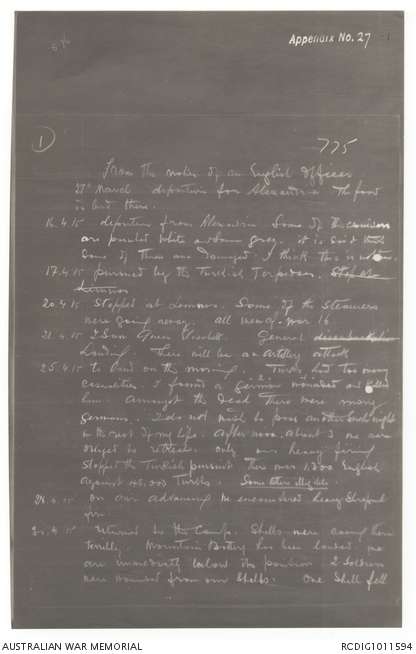 Appendix No. 27
1
775
From the notes of an English Officer
27th March departure for Alexandria The food
is bad there.
16.4.15 departure from Alexandria Some of the
are painted white and some grey. it is said that
some of them are damaged. I think this is
17.4.15 pursued by the Turkish Torpedoes.
20.4.15 Stopped at Lemnos. Some of the Steamers
were going away. all men of war 16
21.4.15 I saw Queen General
Landing. There will be an Artillery attack
25.4.15 to land on the morning. Turks had too many
casualties. I found a German wounded and killed
him. Amongst the Dead there were many
Germans. I do not wish to pass another such night
in the rest of my life. After noon about 3 we were
obliged to retreat. only our heavy firing
stopped the Turkish pursuit There were 1,300 English
against 40,000 Turks. Some others illegible.
on our advancing we encountered heavy Shrapnel
fire.
returned to the Camp. Shells were among them
Terribly. Mountain Battery has been landed, we
are immediately below the position. 2 Soldiers
were wounded from our Shells. One Shell fell
AUSTRALIAN WAR MEMORIAL
RCDIG1011594